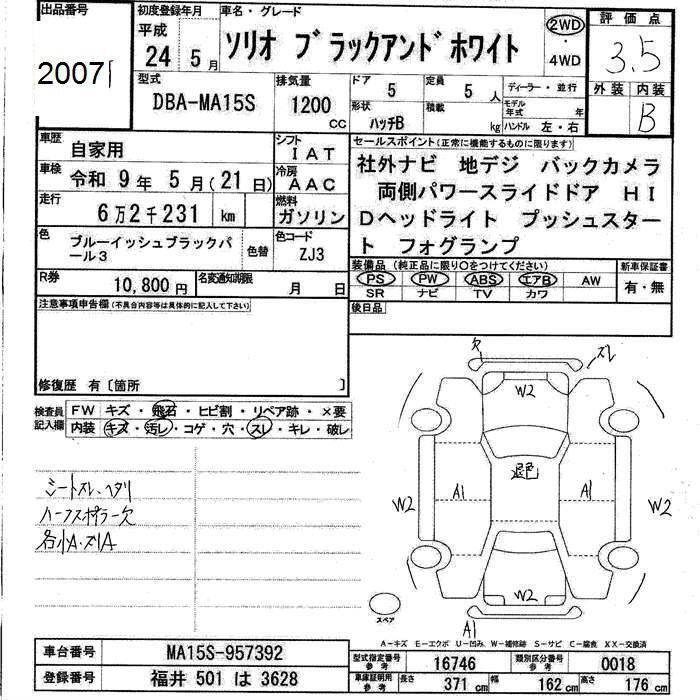 出品番号
2007
初度登録年月
平成
24 5月
車名・グレード
ソリオ ブラックアンドホワイト
2WD
・
4WD
評価点
3.5
外装 内装
B
型式
DBA-MA15S
排気量
1200
CC
ドア
5
定員
5 人
形状
ハッチB
積載
kg
ディーラー・並行
モデル年式 年
ハンドル 左・右
車歴
自家用
シフト
IAT
車検
令和 9年 5月(21日)
冷房
AAC
走行
6万2千231 km
燃料
ガソリン
色
ブルーイッシュブラックパール3
色替
色コード
ZJ3
R券
10,800円
名変通知期限
月 日
セールスポイント(正常に機能するものに限ります)
社外ナビ 地デジ バックカメラ
両側パワースライドドア HI
Dヘッドライト プッシュスター
ト フォグランプ
装備品(純正品に限り○をつけてください)
PS PW ABS エアB AW
SR ナビ TV カワ
新車保証書
有・無
後日品
注意事項申告欄(不具合内容等は具体的に記入して下さい)
修復歴 有〔箇所 〕
検査員記入欄
FW キズ・飛石・ヒビ割・リペア跡・×要
内装 キズ・汚レ・コゲ・穴・スレ・キレ・破レ
シートスレ、ヘタリ
ハーフスポイラー欠
各小A・スリA
欠
スレ
W2
退色
A1
A1
W2
W2
W2
A1
スペア
A-キズ E-エクボ U-凹み W-補修跡 S-サビ C-腐食 XX-交換済
車台番号
MA15S-957392
登録番号
福井 501 は 3628
型式指定番号参考
16746
類別区分番号参考
0018
車庫証明用参考
長さ 371cm
幅 162cm
高さ 176cm